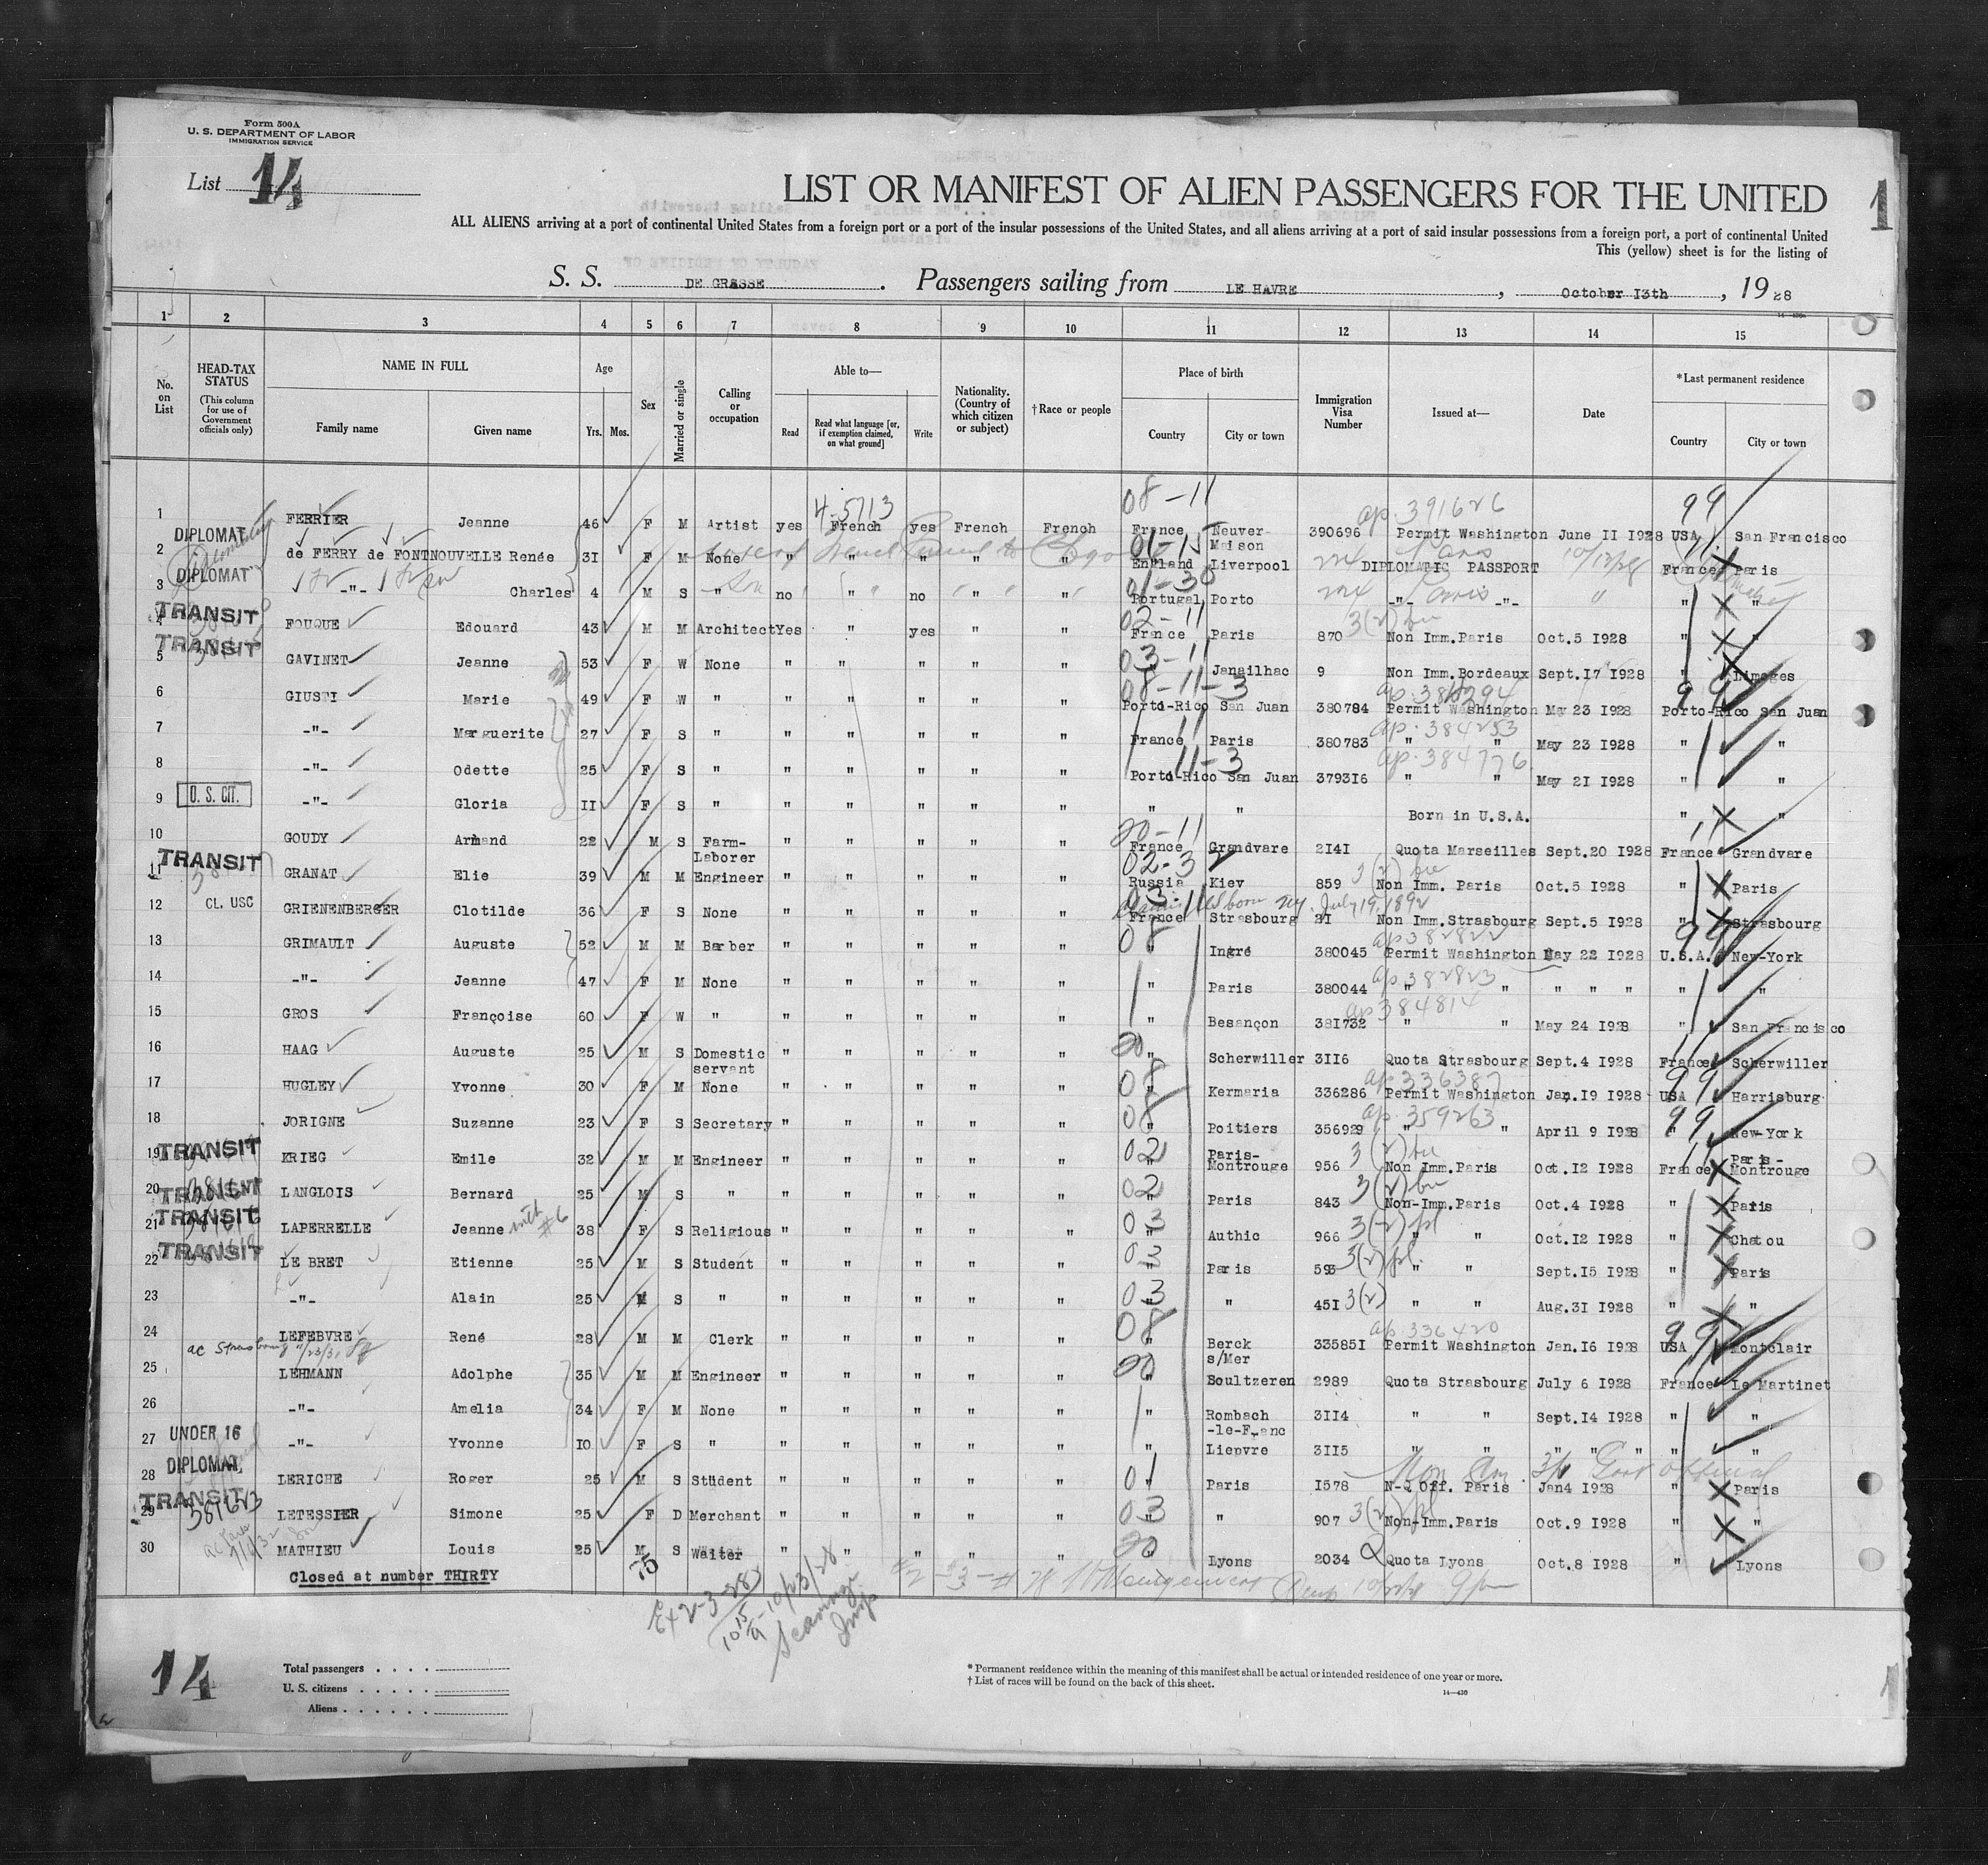 Form 500A
U. S. DEPARTMENT OF LABOR
IMMIGRATION SERVICE
List 14
LIST OR MANIFEST OF ALIEN PASSENGERS FOR THE UNITED
1
ALL ALIENS arriving at a port of continental United States from a foreign port or a port of the insular possessions of the United States, and all aliens arriving at a port of said insular possessions from a foreign port, a port of continental United
This (yellow) sheet is for the listing of
S. S. DE GRASSE. Passengers sailing from LE HAVRE, October I3th, 1928
1 2 3 4 5 6 7 8 9 10 11 12 13 14 15
No. on List
HEAD-TAX STATUS (This column for use of Government officials only)
NAME IN FULL Family name Given name
Age Yrs. Mos.
Sex
Married or single
Calling or occupation
Able to— Read Read what language [or, if exemption claimed, on what ground] Write
Nationality. (Country of which citizen or subject)
†Race or people
Place of birth Country City or town
Immigration Visa Number
Issued at—
Date
*Last permanent residence Country City or town
08-11 ap. 391626 99
1 FERRIER Jeanne 46 F M Artist yes French yes French French France Neuver-Maison 390696 Permit Washington June II I928 USA San Francisco
DIPLOMAT
2 de FERRY de FONTNOUVELLE Renée 3I F M None " " " " " England Liverpool DIPLOMATIC PASSPORT France Paris
DIPLOMAT 01-30
3 -"- Charles 4 M S " no " no " " Portugal Porto -"- Paris -"- " "
TRANSIT 02-11
4 FOUQUE Edouard 43 M M Architect Yes " yes " " France Paris 870 Non Imm.Paris Oct.5 I928 " "
TRANSIT 03-11
5 GAVINET Jeanne 53 F W None " " " " " " Janailhac 9 Non Imm.Bordeaux Sept.I7 I928 " Limoges
08-11-3
6 GIUSTI Marie 49 F W " " " " " " Porto-Rico San Juan 380784 Permit Washington May 23 I928 Porto-Rico San Juan
ap. 384253
7 -"- Marguerite 27 F S " " " " " " France Paris 380783 " " May 23 I928 " "
11-3 ap. 384776
8 -"- Odette 25 F S " " " " " " Porto-Rico San Juan 3793I6 " " May 2I I928 " "
9 U. S. CIT. -"- Gloria II F S " " " " " " " " Born in U.S.A. " "
20-11
10 GOUDY Armand 22 M S Farm-Laborer " " " " " France Grandvare 2I4I Quota Marseilles Sept.20 I928 France Grandvare
TRANSIT 02-3
11 GRANAT Elie 39 M M Engineer " " " " " Russia Kiev 859 Non Imm. Paris Oct.5 I928 " Paris
CL. USC born NY. July 19, 1892
12 GRIENENBERGER Clotilde 36 F S None " " " " " France Strasbourg 2I Non Imm.Strasbourg Sept.5 I928 " Strasbourg
08 ap 382822 99
13 GRIMAULT Auguste 52 M M Barber " " " " " " Ingré 380045 Permit Washington May 22 I928 U.S.A. New-York
ap 382823
14 -"- Jeanne 47 F M None " " " " " " Paris 380044 " " " " " " "
ap 384814
15 GROS Françoise 60 F W " " " " " " " Besançon 38I732 " " May 24 I928 " San Francisco
20
16 HAAG Auguste 25 M S Domestic servant " " " " " " Scherwiller 3II6 Quota Strasbourg Sept.4 I928 France Scherwiller
08 ap 336387 99
17 HUGLEY Yvonne 30 F M None " " " " " " Kermaria 336286 Permit Washington Jan.I9 I928 USA Harrisburg
08 ap. 359263 99
18 JORIGNE Suzanne 23 F S Secretary " " " " " " Poitiers 356929 " " April 9 I928 " New-York
TRANSIT 02
19 KRIEG Emile 32 M M Engineer " " " " " " Paris-Montrouge 956 Non Imm.Paris Oct.I2 I928 France Paris-Montrouge
TRANSIT 02
20 LANGLOIS Bernard 25 M S " " " " " " " Paris 843 Non-Imm.Paris Oct.4 I928 " Paris
TRANSIT 03
21 LAPERRELLE Jeanne with #6 38 F S Religious " " " " " " Authic 966 " " Oct.I2 I928 " Chatou
TRANSIT 03
22 LE BRET Etienne 25 M S Student " " " " " " Paris 595 " " Sept.I5 I928 " Paris
03
23 -"- Alain 25 M S " " " " " " " " 45I 3(2) " " Aug.3I I928 " "
08 ap. 336420 99
24 LEFEBVRE René 28 M M Clerk " " " " " " Berck s/Mer 33585I Permit Washington Jan.I6 I928 USA Montclair
20
25 LEHMANN Adolphe 35 M M Engineer " " " " " " Soultzeren 2989 Quota Strasbourg July 6 I928 France Le Martinet
26 -"- Amelia 34 F M None " " " " " " Rombach-le-Franc 3II4 " " Sept.I4 I928 " "
27 UNDER 16 -"- Yvonne I0 F S " " " " " " " Liepvre 3II5 " " " " " " "
DIPLOMAT 01
28 LERICHE Roger 25 M S Student " " " " " " Paris I578 N-Q Off. Paris Jan4 I928 " Paris
TRANSIT 381623 03
29 LETESSIER Simone 25 F D Merchant " " " " " " " 907 Non-Imm.Paris Oct.9 I928 " "
20
30 MATHIEU Louis 25 M S Waiter " " " " " " Lyons 2034 Quota Lyons Oct.8 I928 " Lyons
Closed at number THIRTY
75
14
Total passengers
U. S. citizens
Aliens
* Permanent residence within the meaning of this manifest shall be actual or intended residence of one year or more.
† List of races will be found on the back of this sheet.
14—436